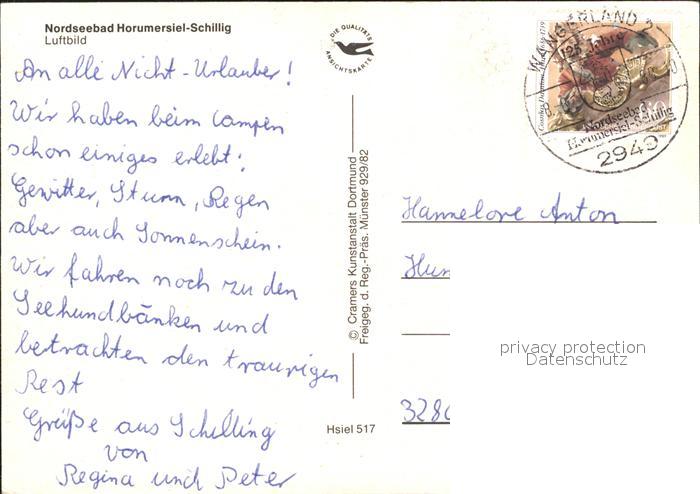 Nordseebad Horumersiel-Schillig
Luftbild
An alle Nicht-Urlauber!
Wir haben beim campen
schon einiges erlebt:
Gewitter, Sturm, Regen
aber auch Sonnenschein.
Wir fahren noch zu den
Seehundbänken und
betrachten den traurigen
Rest
Grüße aus Schilling
von
Regina und Peter
DIE QUALITÄTS
ANSICHTSKARTE
© Cramers Kunstanstalt Dortmund
Freigeg. d. Reg.-Präs. Münster 929/82
Hsiel 517
WANGERLAND 2
125 Jahre
Nordseebad
Horumersiel-Schillig
2949
Hannelore Anton
Hun
328
privacy protection
Datenschutz